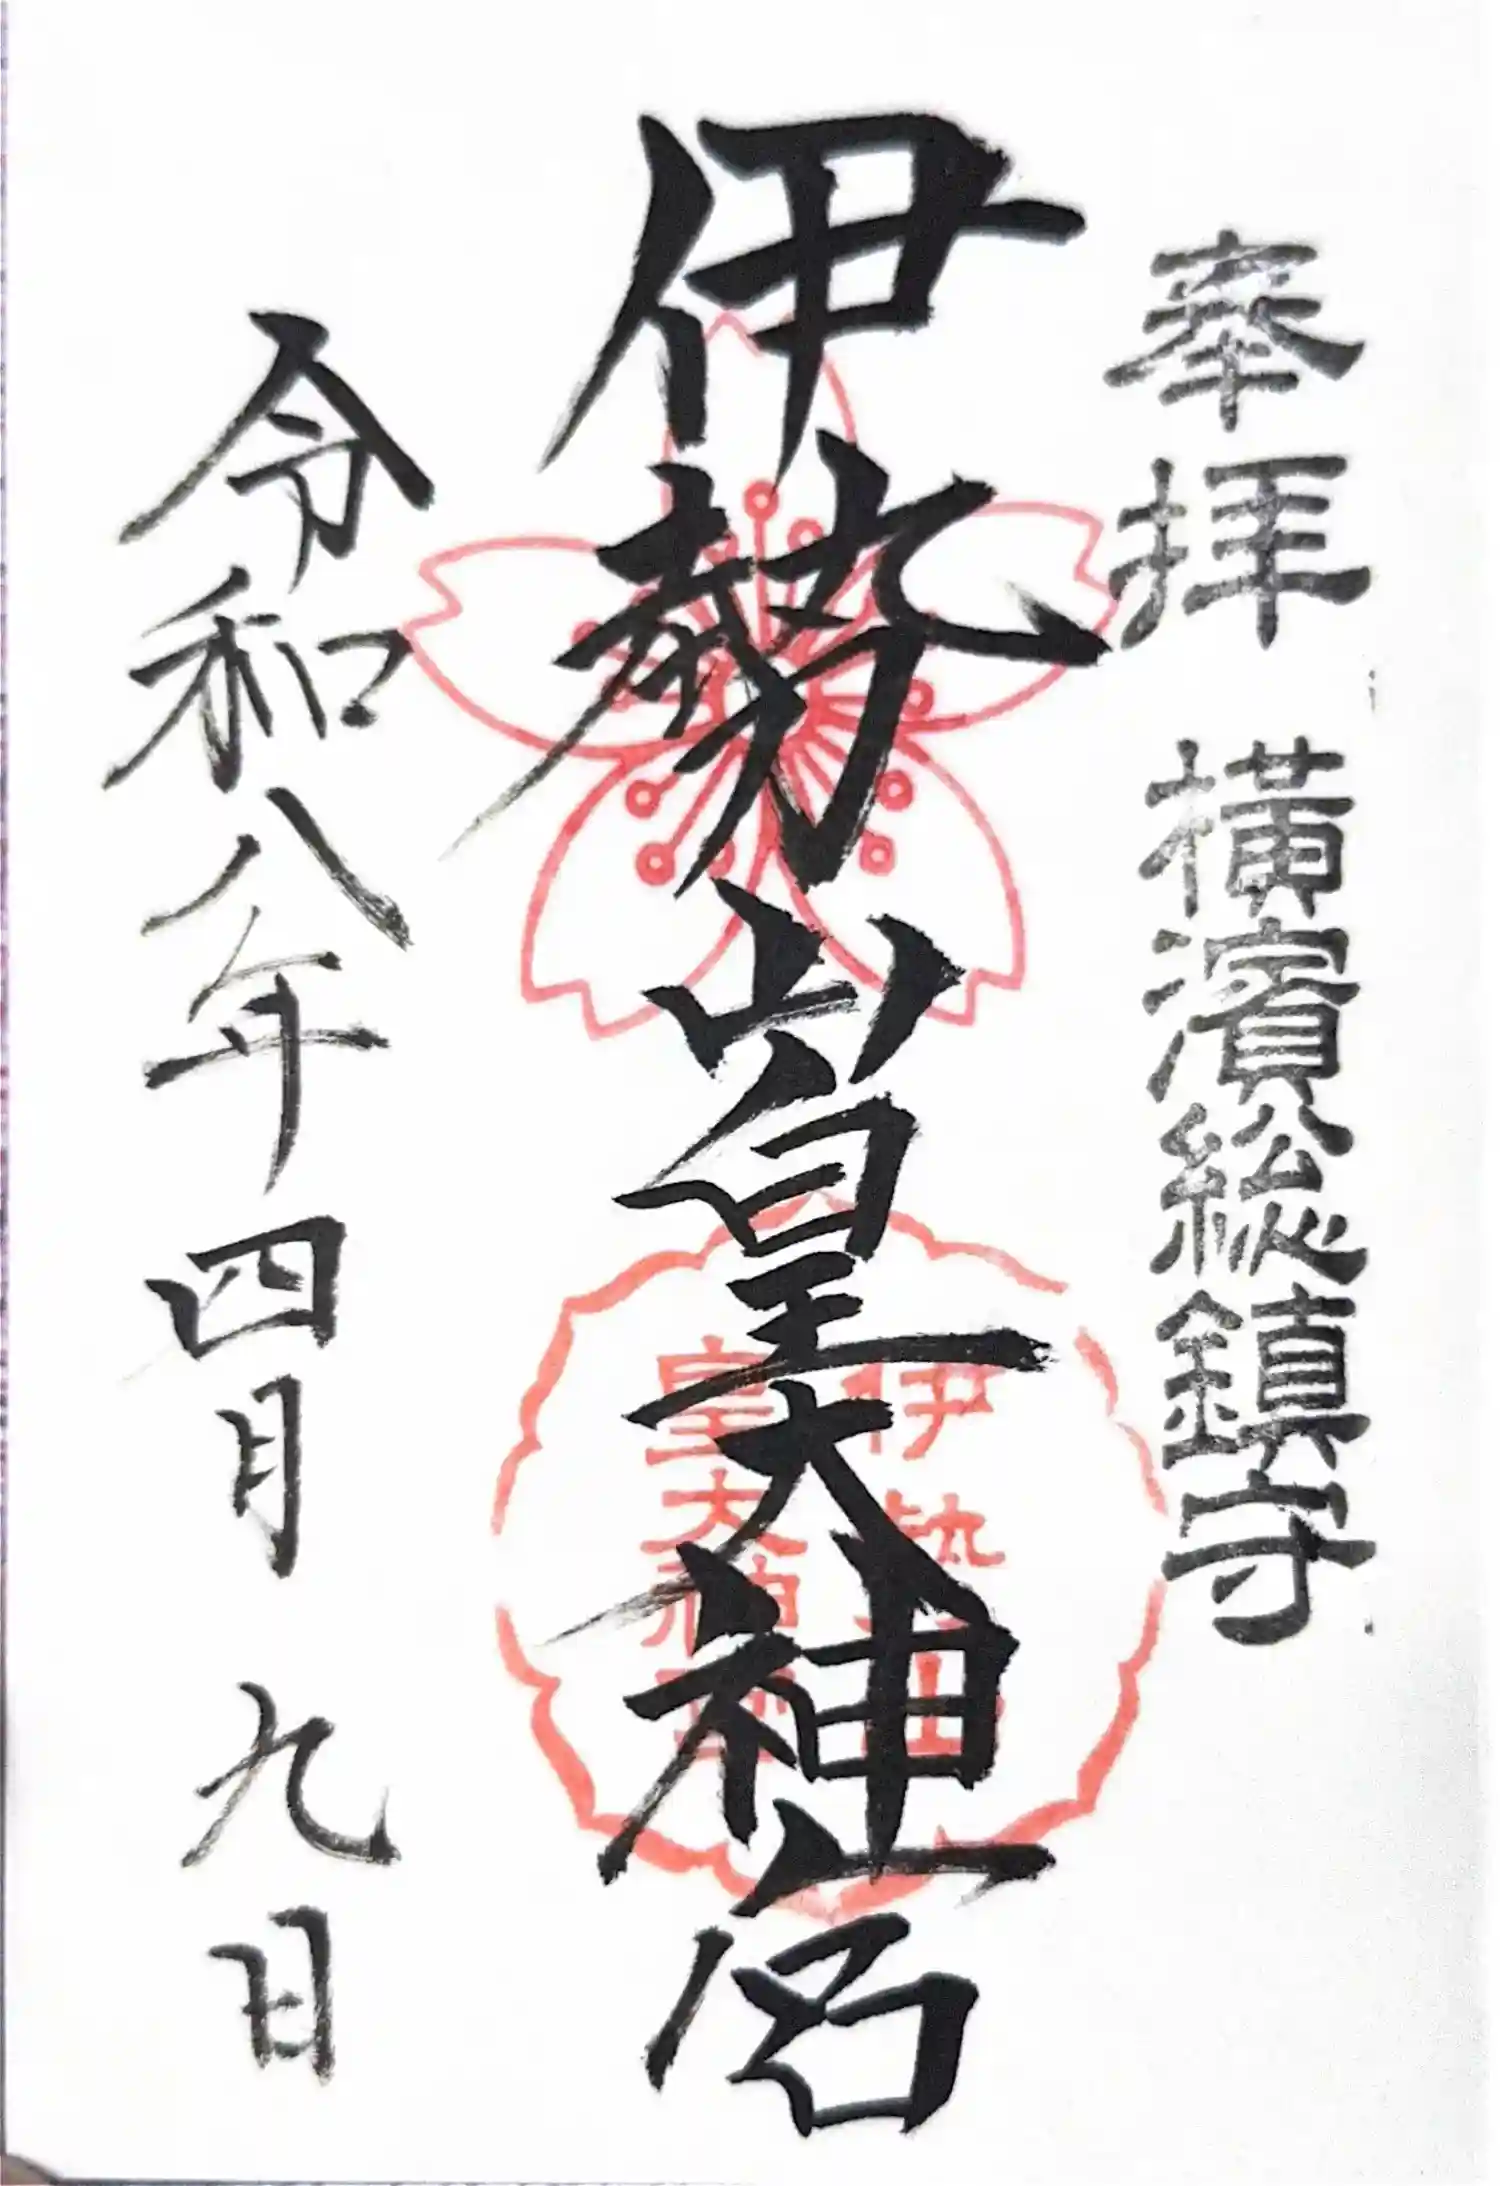 奉拝 横濱総鎮守
伊勢山皇大神宮
伊勢山
皇大神宮
令和八年四月九日